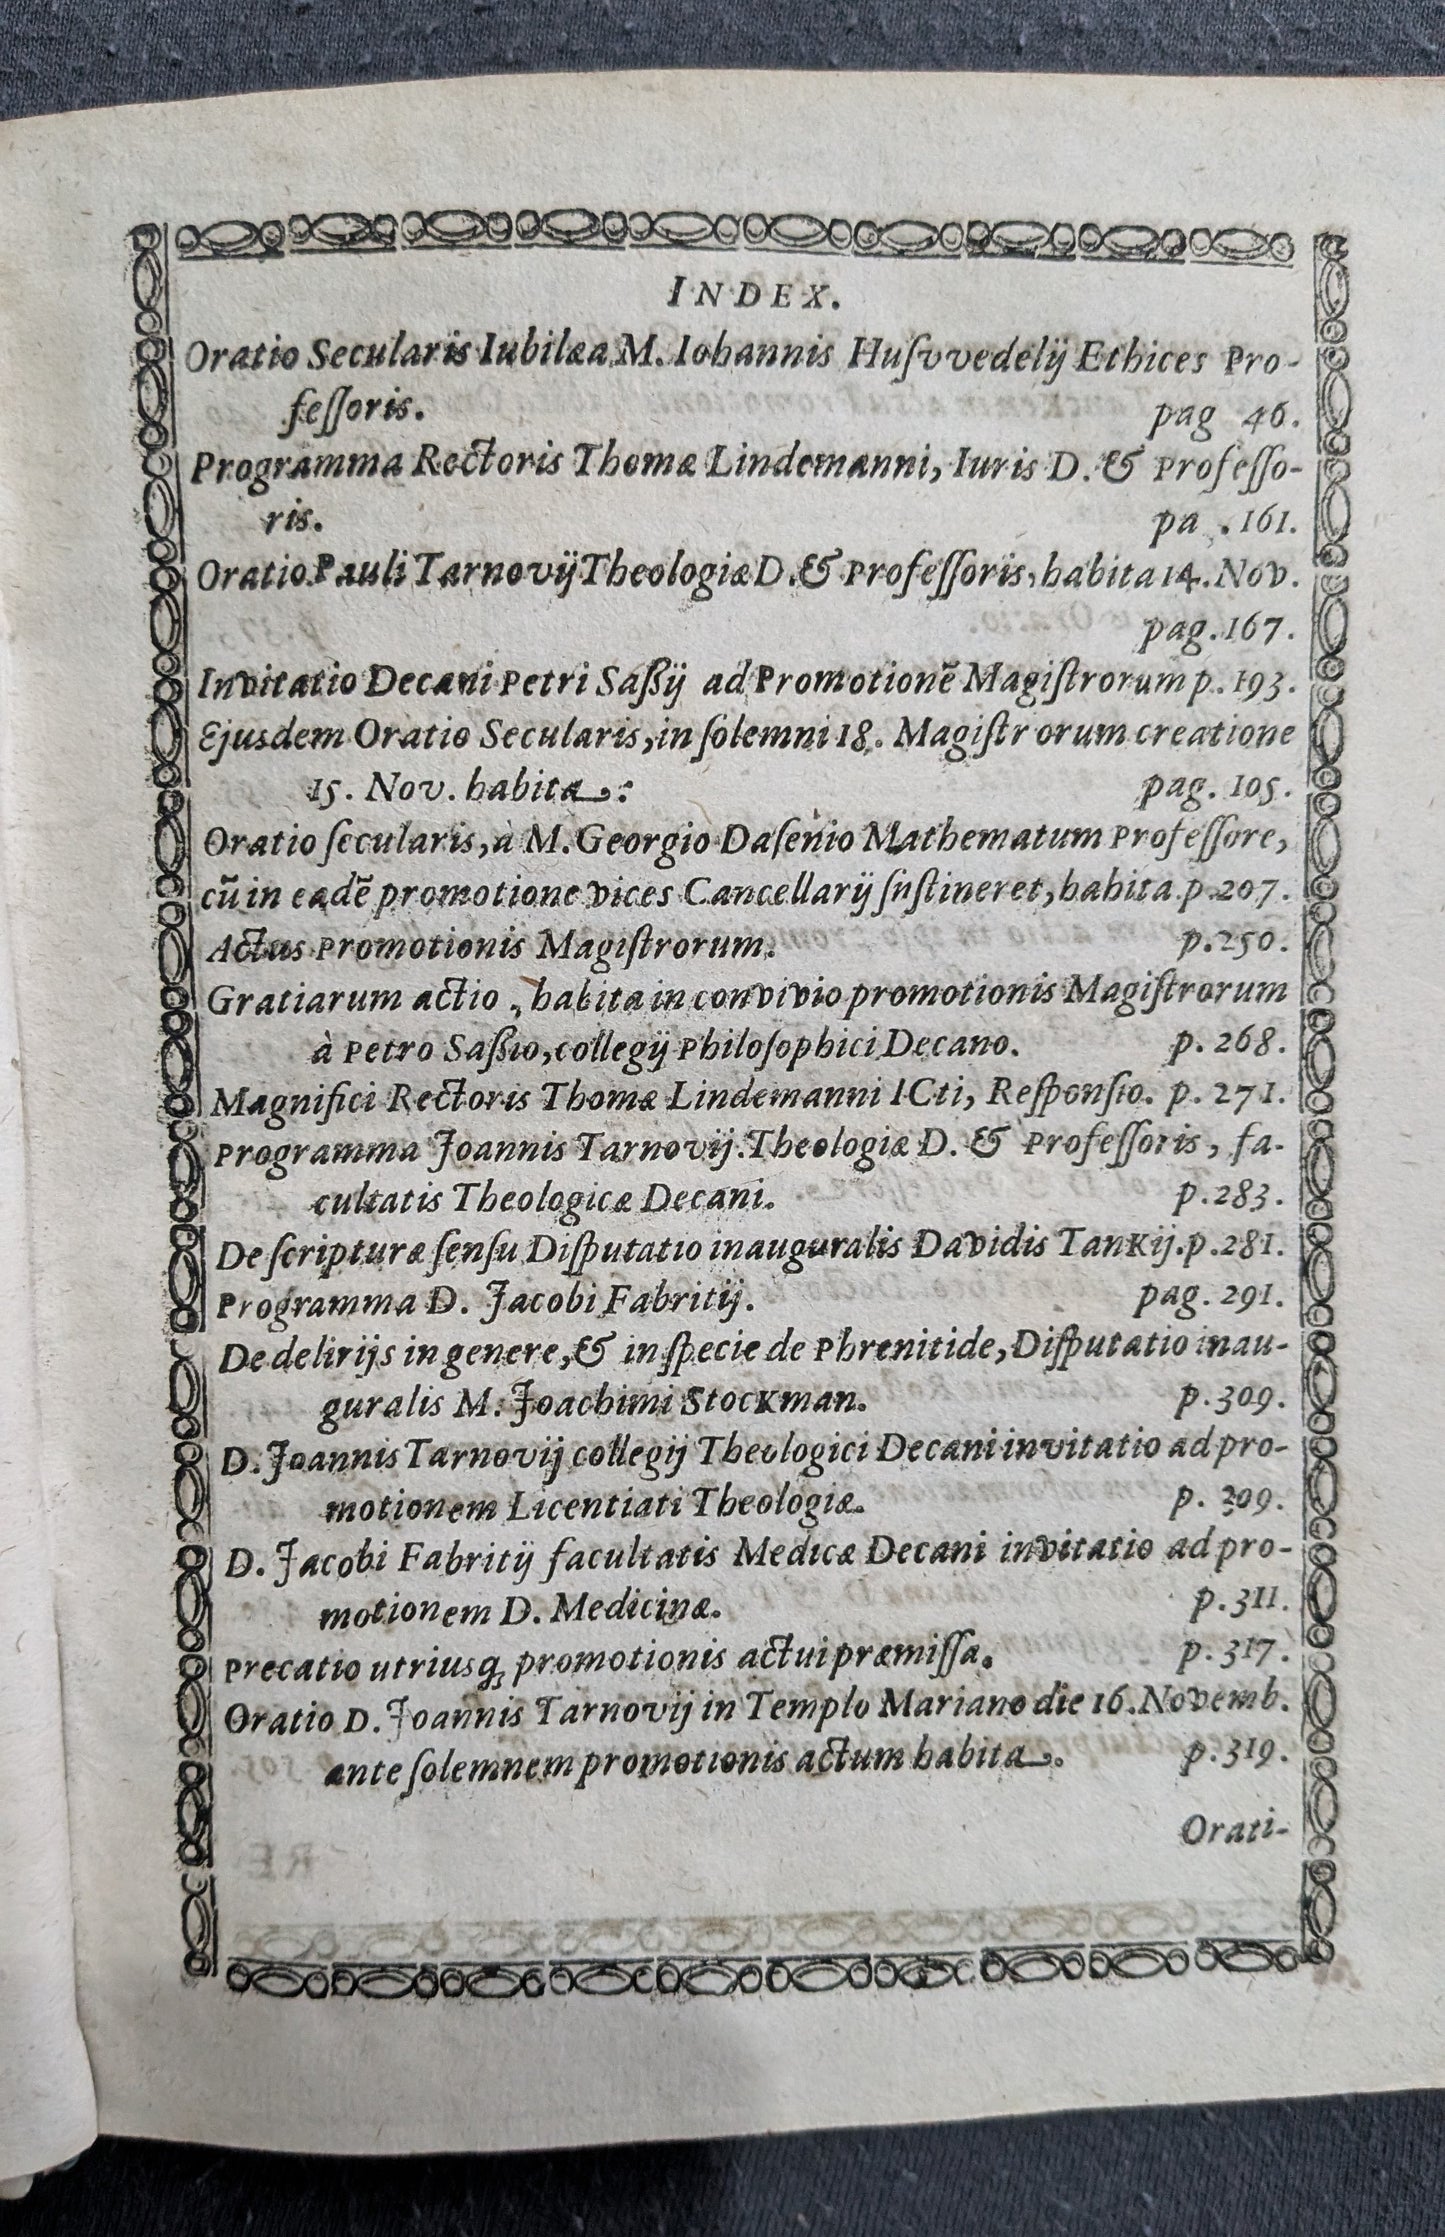 INDEX.
Oratio Secularis Iubilæa M. Iohannis Huſvvedelij Ethices Pro-
feſſoris. pag 46.
Programma Rectoris Thomæ Lindemanni, Iuris D. & Profeſſo-
ris. pa . 161.
Oratio Pauli Tarnovij Theologiæ D. & Profeſſoris, habita 14. Nov.
pag. 167.
Invitatio Decani Petri Saßij ad Promotionē Magiſtrorum p. 193.
Ejusdem Oratio Secularis, in ſolemni 18. Magiſtrorum creatione
15. Nov. habita.: pag. 105.
Oratio ſecularis, à M. Georgio Daſenio Mathematum Profeſſore,
cū in eadē promotione vices Cancellarij ſnſtineret, habita. p. 207.
Actus Promotionis Magiſtrorum. p. 250.
Gratiarum actio, habita in convivio promotionis Magiſtrorum
à Petro Saßio, collegij Philoſophici Decano. p. 268.
Magnifici Rectoris Thomæ Lindemanni ICti, Reſponſio. p. 271.
Programma Joannis Tarnovij. Theologiæ D. & Profeſſoris, fa-
cultatis Theologicæ Decani. p. 283.
De ſcripturæ ſenſu Diſputatio inauguralis Davidis Tankij. p. 281.
Programma D. Jacobi Fabritij. pag. 291.
De delirijs in genere, & in ſpecie de Phrenitide, Diſputatio inau-
guralis M. Joachimi Stockman. p. 309.
D. Joannis Tarnovij collegij Theologici Decani invitatio ad pro-
motionem Licentiati Theologiæ. p. 309.
D. Jacobi Fabritij facultatis Medicæ Decani invitatio ad pro-
motionem D. Medicinæ. p. 311.
Precatio utriusq; promotionis actui præmiſſa. p. 317.
Oratio D. Joannis Tarnovij in Templo Mariano die 16. Novemb.
ante ſolemnem promotionis actum habita. p. 319.
Orati-